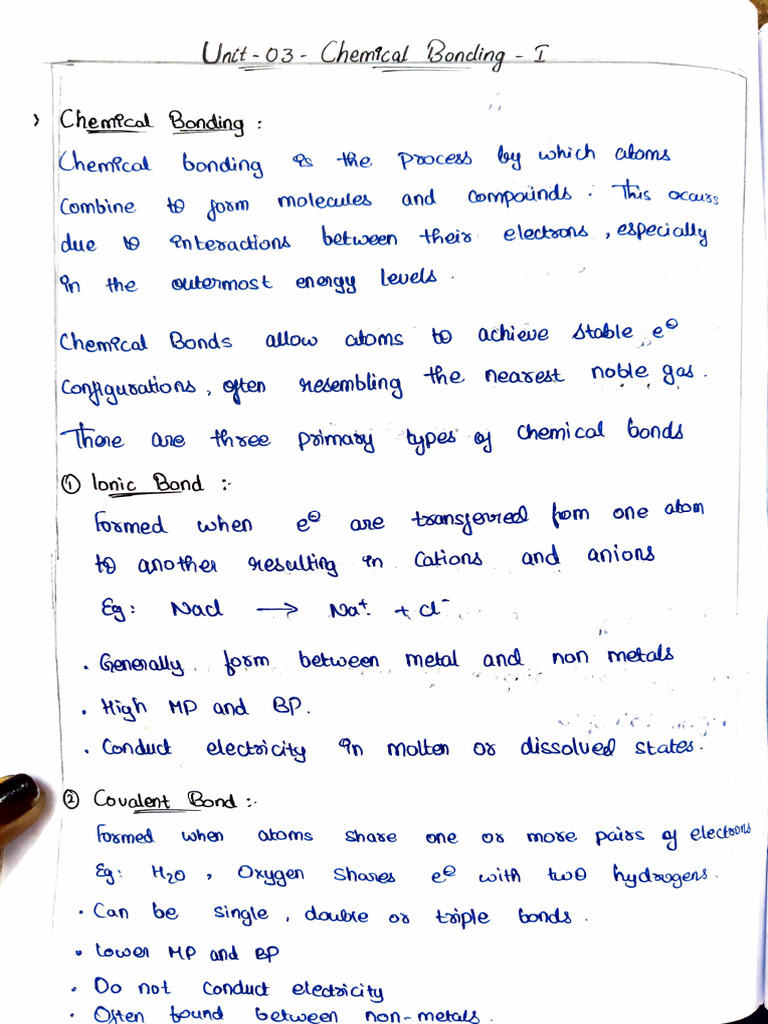 Unit-03 - Chemical Bonding - I
Chemical Bonding :
Chemical bonding is the process by which atoms
combine to form molecules and compounds. This occurs
due to interactions between their electrons, especially
in the outermost energy levels.
Chemical Bonds allow atoms to achieve stable e⊖
configurations, often resembling the nearest noble gas.
There are three primary types of chemical bonds
① Ionic Bond :-
Formed when e⊖ are transferred from one atom
to another resulting in Cations and anions
Eg: Nacl → Na⁺ + Cl⁻
. Generally form between metal and non metals
. High MP and BP.
. Conduct electricity in molten or dissolved states.
② Covalent Bond :-
Formed when atoms share one or more pairs of electrons
Eg: H₂O, Oxygen Shares e⊖ with two hydrogens.
. Can be single, double or triple bonds.
. Lower MP and BP
. Do not conduct electricity
. Often found between non-metals.